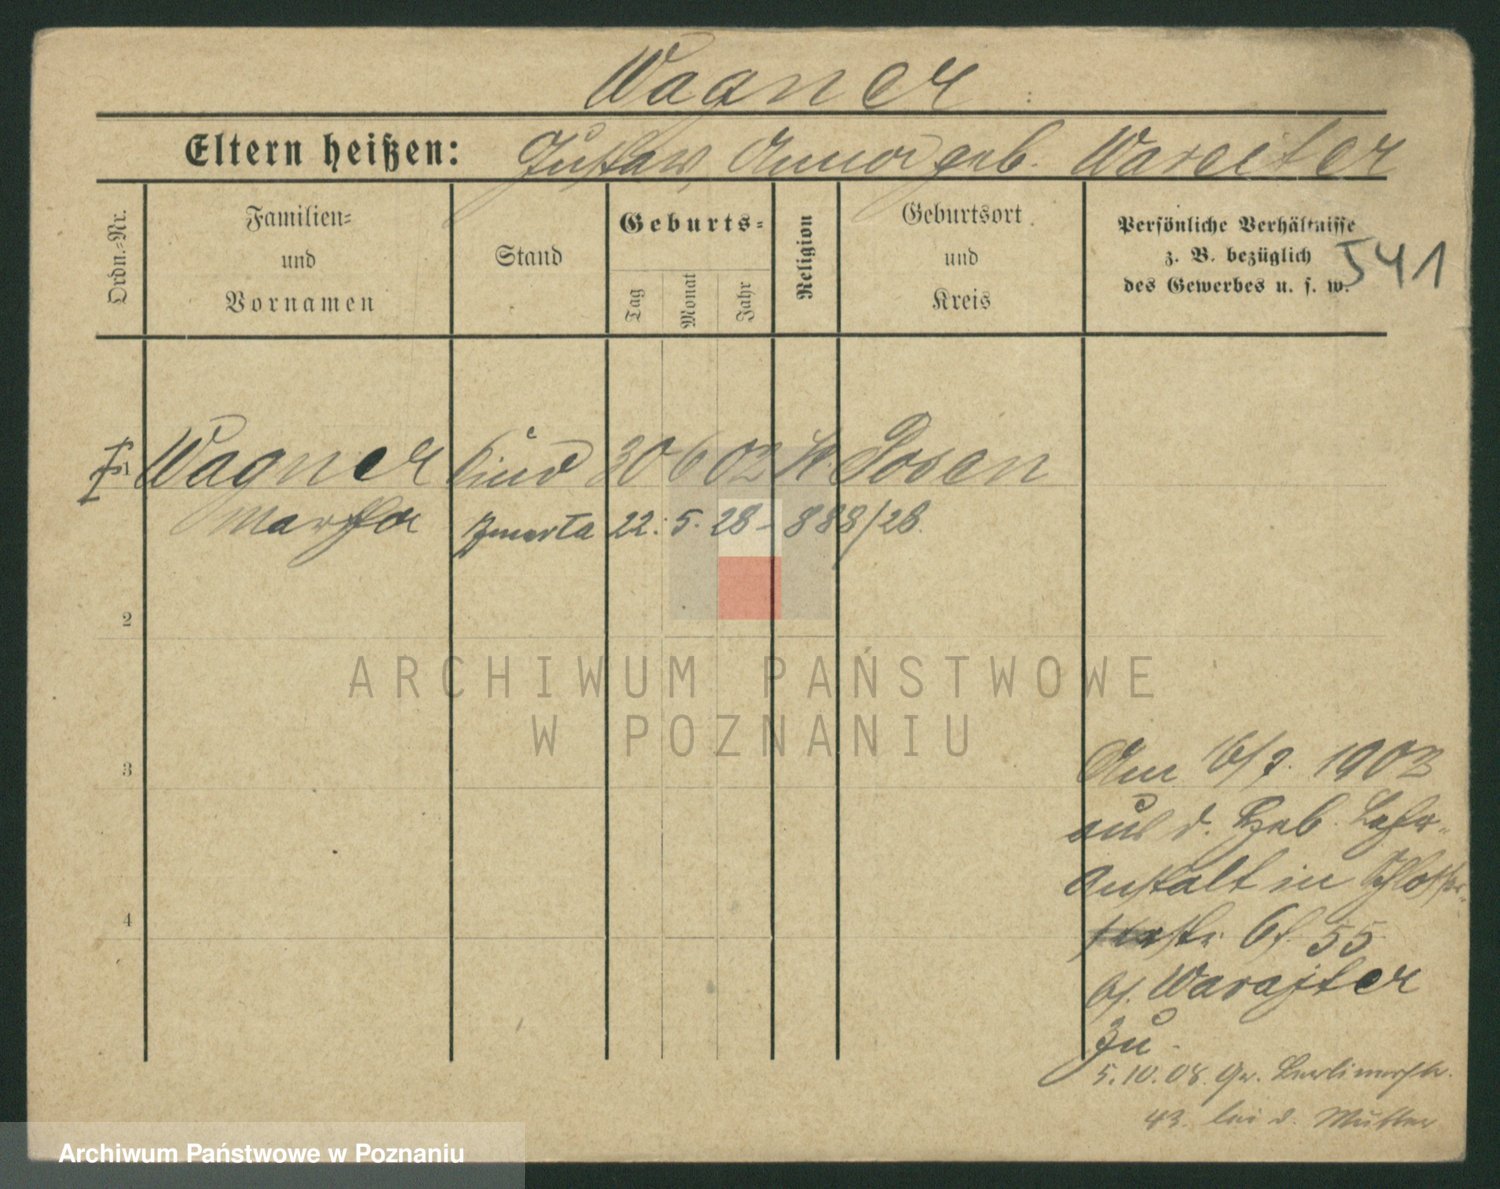 Wagner
Eltern heißen: Gustav, Anna geb. Wareiter
Ordn.-Nr.
Familien-
und
Vornamen
Stand
Geburts-
Tag
Monat
Jahr
Religion
Geburtsort
und
Kreis
Persönliche Verhältnisse
z. B. bezüglich
des Gewerbes u. s. w.
541
1 Wagner Kind 30 6 02 K. Posen
Martha zmarła 22. 5. 28 - 888/28.
2
3
4
Am 16/9. 1903
aus d. Heb. Lehr-
Anstalt in
55
b/. Warajter
zu.
5.10.08. Gr. Berlinerstr.
43. bei d. Mutter
ARCHIWUM PAŃSTWOWE
W POZNANIU
Archiwum Państwowe w Poznaniu